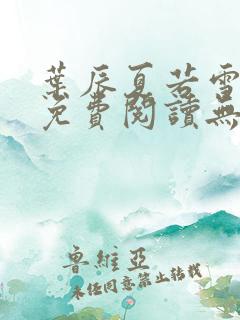 葉辰夏若雪
免費閱讀無
魯維亞
未任同意禁止轉載